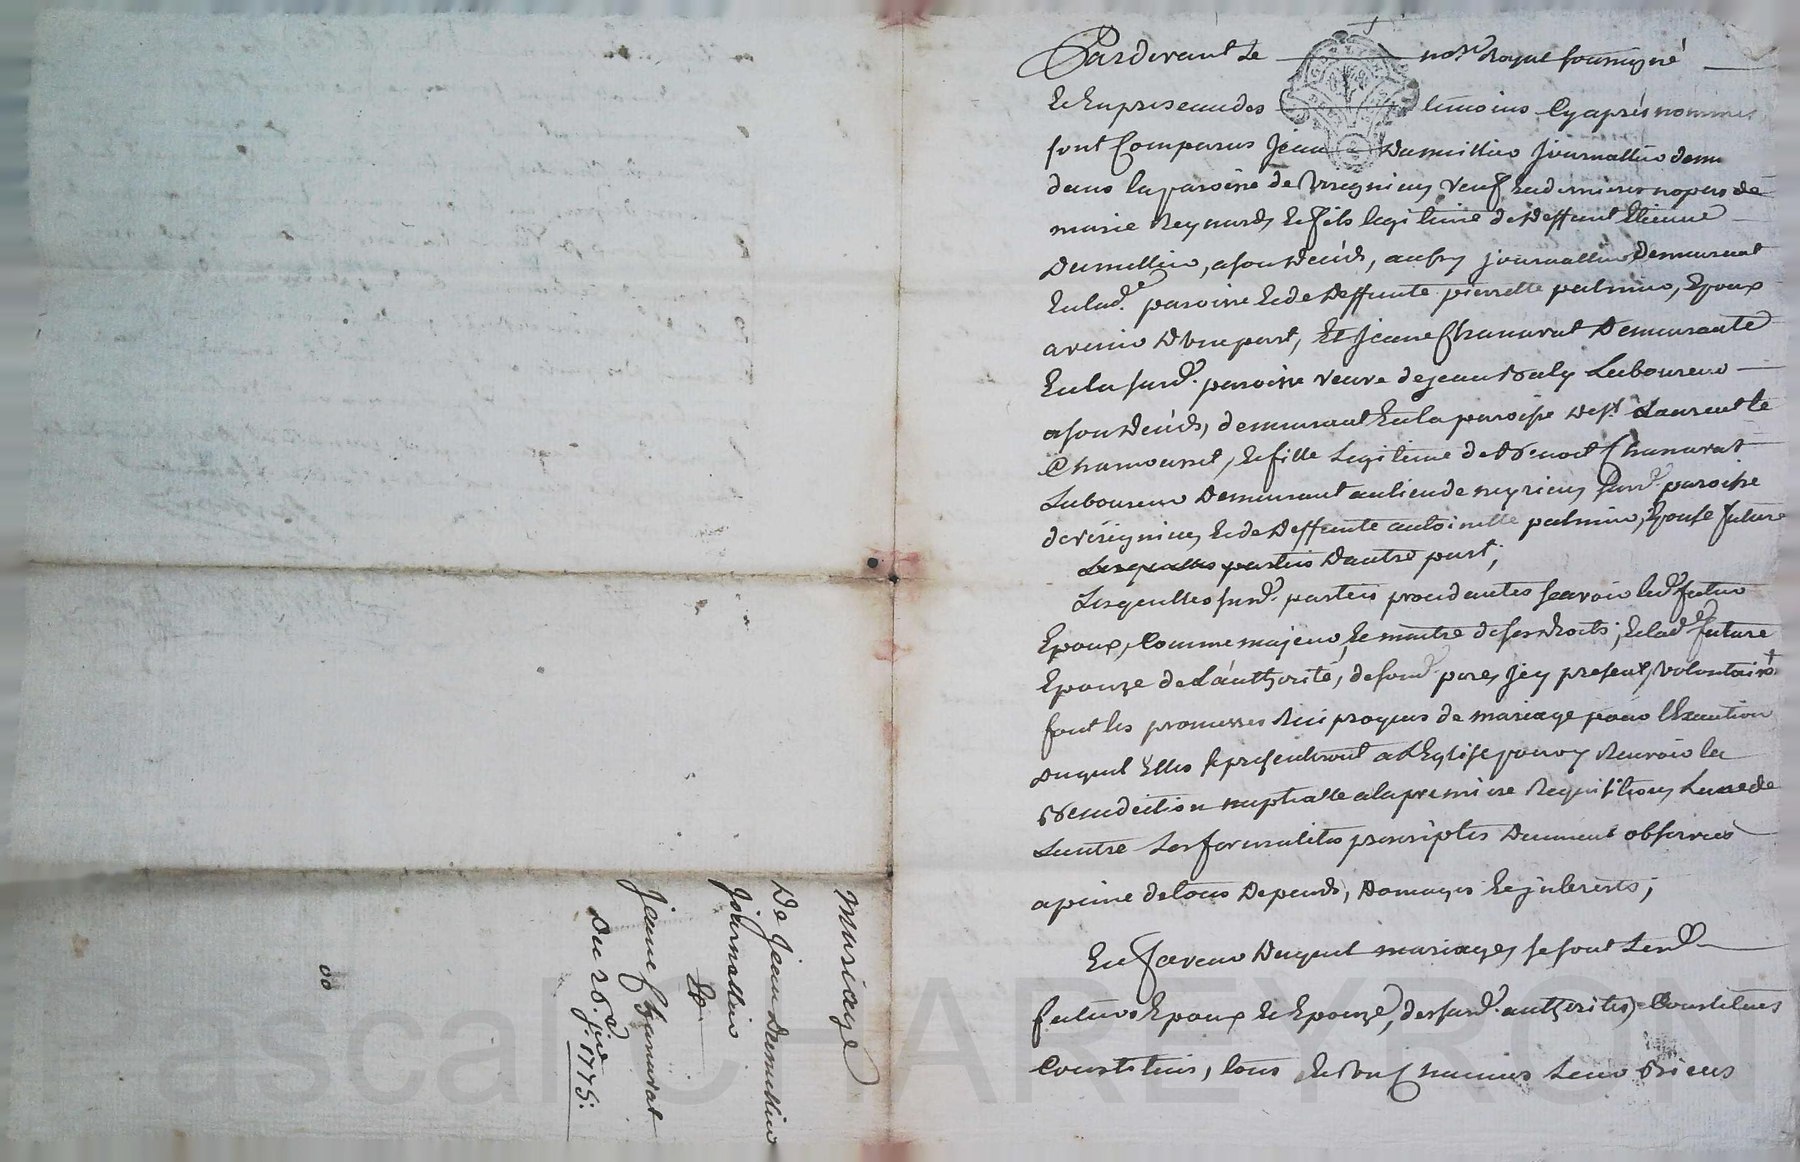 Mariage
De Jean Dumillieu
journallieu
Et
Jeane Chanavat
Du 26.e 1775:
Pardevant Le no.re Royal soussigné
Et En presence des temoins Cy aprés nommés
sont Comparus Jean Dumillieu journallieu dem.
dans la paroisse de veuf En dernieres nopces de
marie Reynard, Et fils legitime de deffunt Etienne
Dumillieu, a son décéds, aussy journallieu Demeurant
En lad.e paroisse Et de Deffunte pierrette palmier, Epoux
avenir D'une part, Et Jeane Chanavat Demeurante
En la susd.e paroisse veuve de jean Laboureur
a son décéds, demeurant En la paroisse de S.t Laurent le
Chamousset, Et fille Legitime de Benoit Chanavat
Laboureur Demeurant au lieu de susd.e paroisse
de Et de Deffunte antoinette palmier, Epouse future
Lesquelles parties D'autre part;
Lesquelles susd. parties procedantes sçavoir led. futur
Epoux, Comme majeur, Et maitre de ses droits; Et lad.e future
Epouze de L'authorité, de sond. pere, Jcy present, volontair.t
font les promesses Réciproques de mariage pour l'Execution
Duquel Elles se presenteront a L'Eglise pour y Recevoir la
Benediction nuptialle a la premiere Requisition, L'une de
L'autre Les formalités prescriptes Duement observées
a peine de tous Depends, Domages Et jnterests;
En faveur Duquel mariage, se sont Lesd.
futurs Epoux Et Epouze, des susd. authorités, Constitués
Constitués, tous Et Un Chacuns Leur Biens